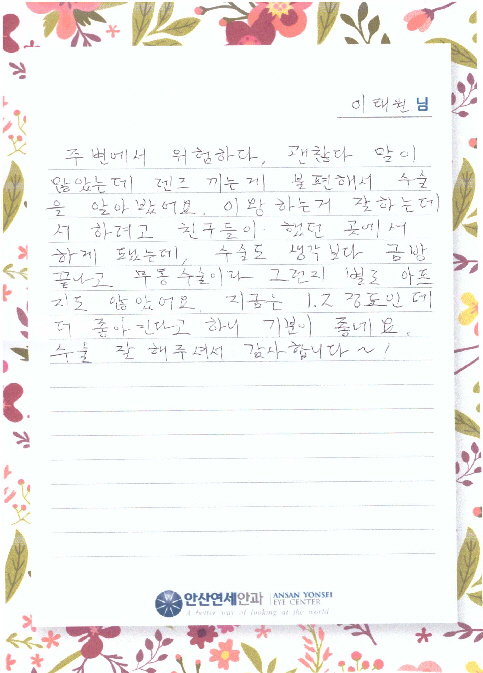 이태원 님
주변에서 위험하다, 괜찮다 말이
많았는데 렌즈 끼는게 불편해서 수술
을 알아봤어요. 이왕하는거 잘하는데
서 하려고 친구들이 했던 곳에서
하게 됐는데, 수술도 생각보다 금방
끝나고 무통수술이라 그런지 별로 아프
지도 않았어요. 지금은 1.2 정도인데
더 좋아진다고 하니 기분이 좋네요.
수술 잘 해주셔서 감사합니다~!
안산연세안과 ANSAN YONSEI
EYE CENTER
A better way of looking at the world